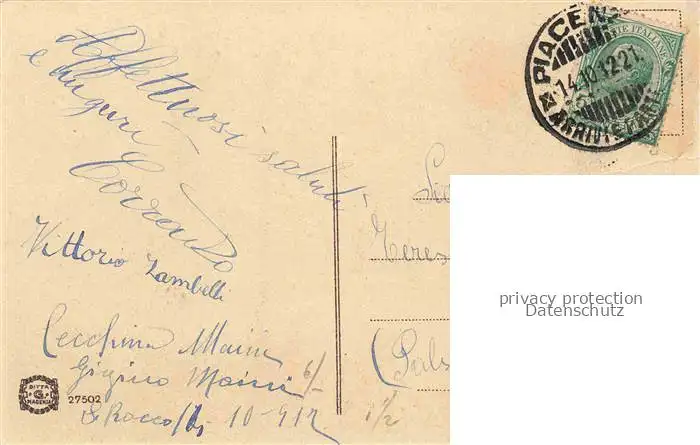 Affettuosi saluti
e auguri
Vittorio Zambelli
Cecchina Maini
Gigino Maini
S. Rocco 10-912
6/-
1/2
Teres
PIACEN
14.10.12 21
ARRIVI E PART
POSTE ITALIANE
DITTA
G
MAGENTA
27502
privacy protection
Datenschutz